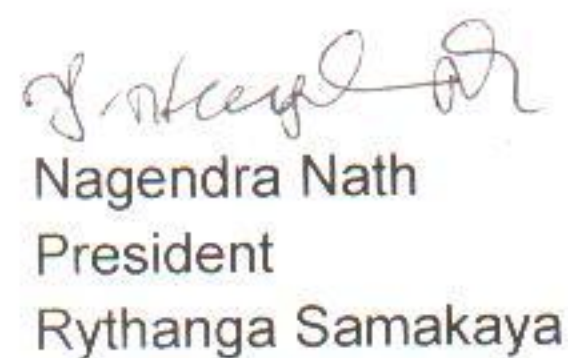 Nagendra Nath
President
Rythanga Samakaya